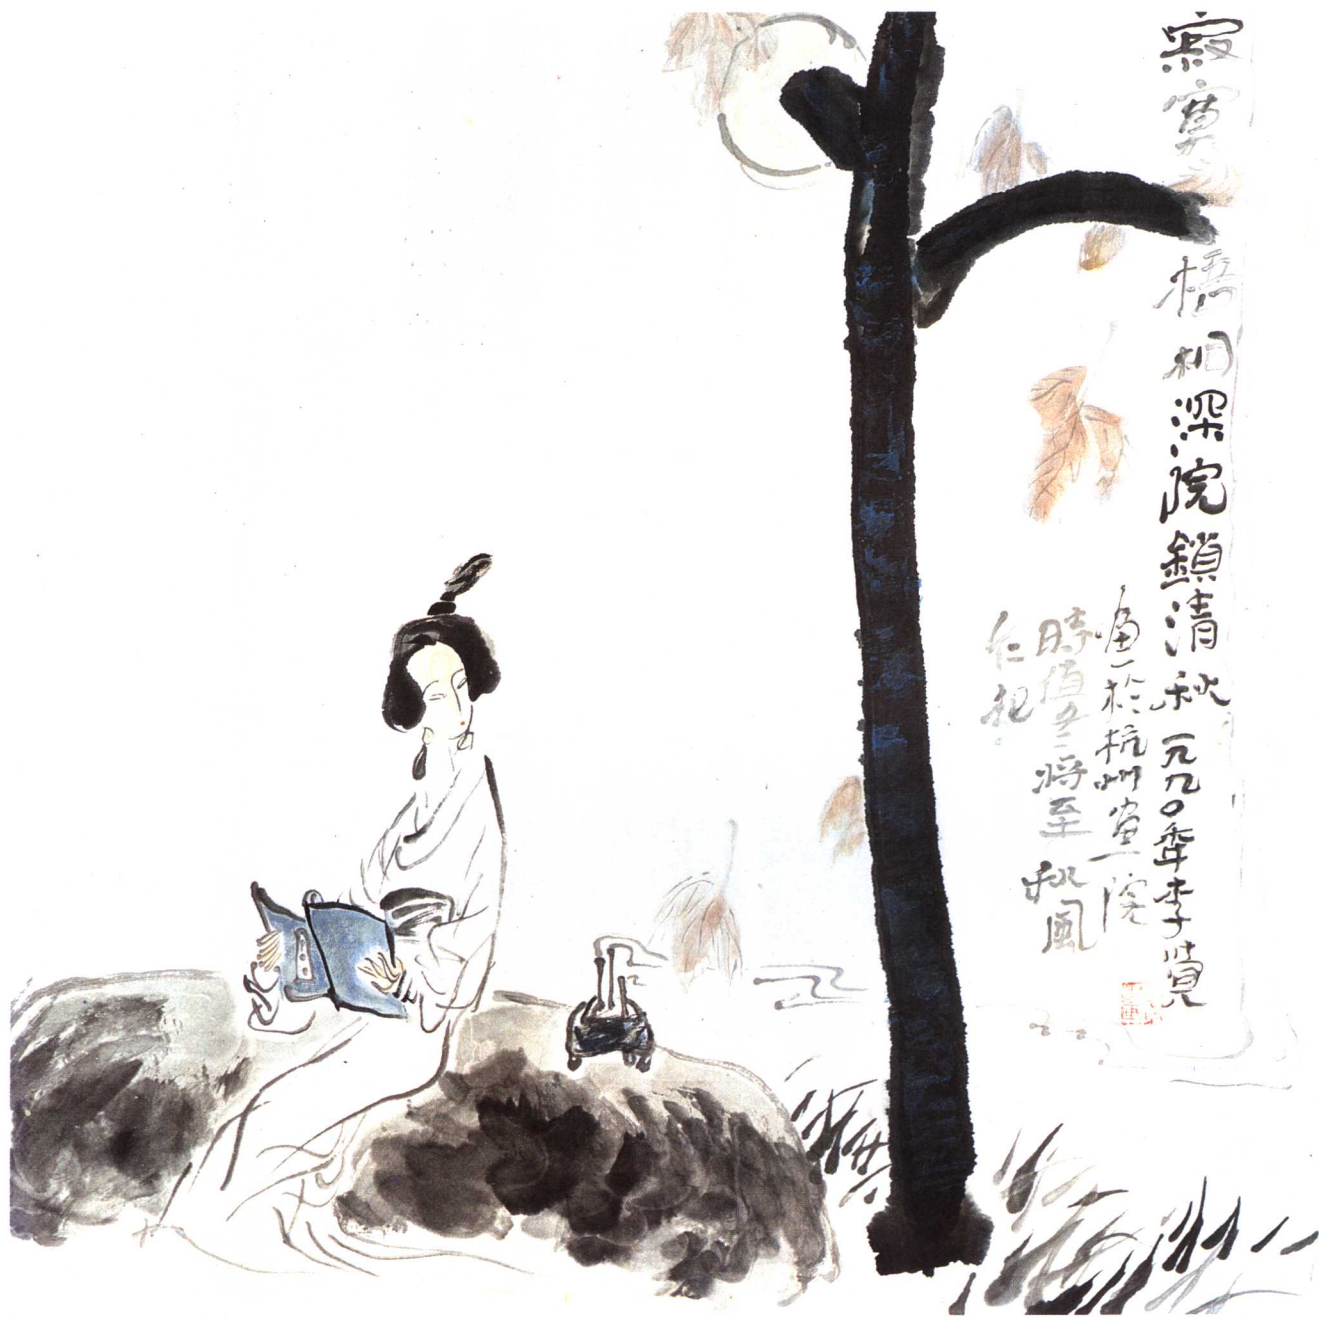 寂寞梧桐深院鎖清秋一九九〇年李
於杭州畫院
時值冬將至秋風